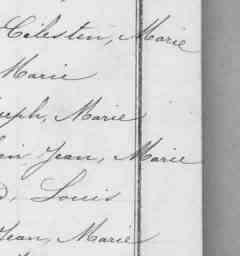 Célestin, Marie
Marie
seph, Marie
Jean, Marie
Louis
Jean, Marie